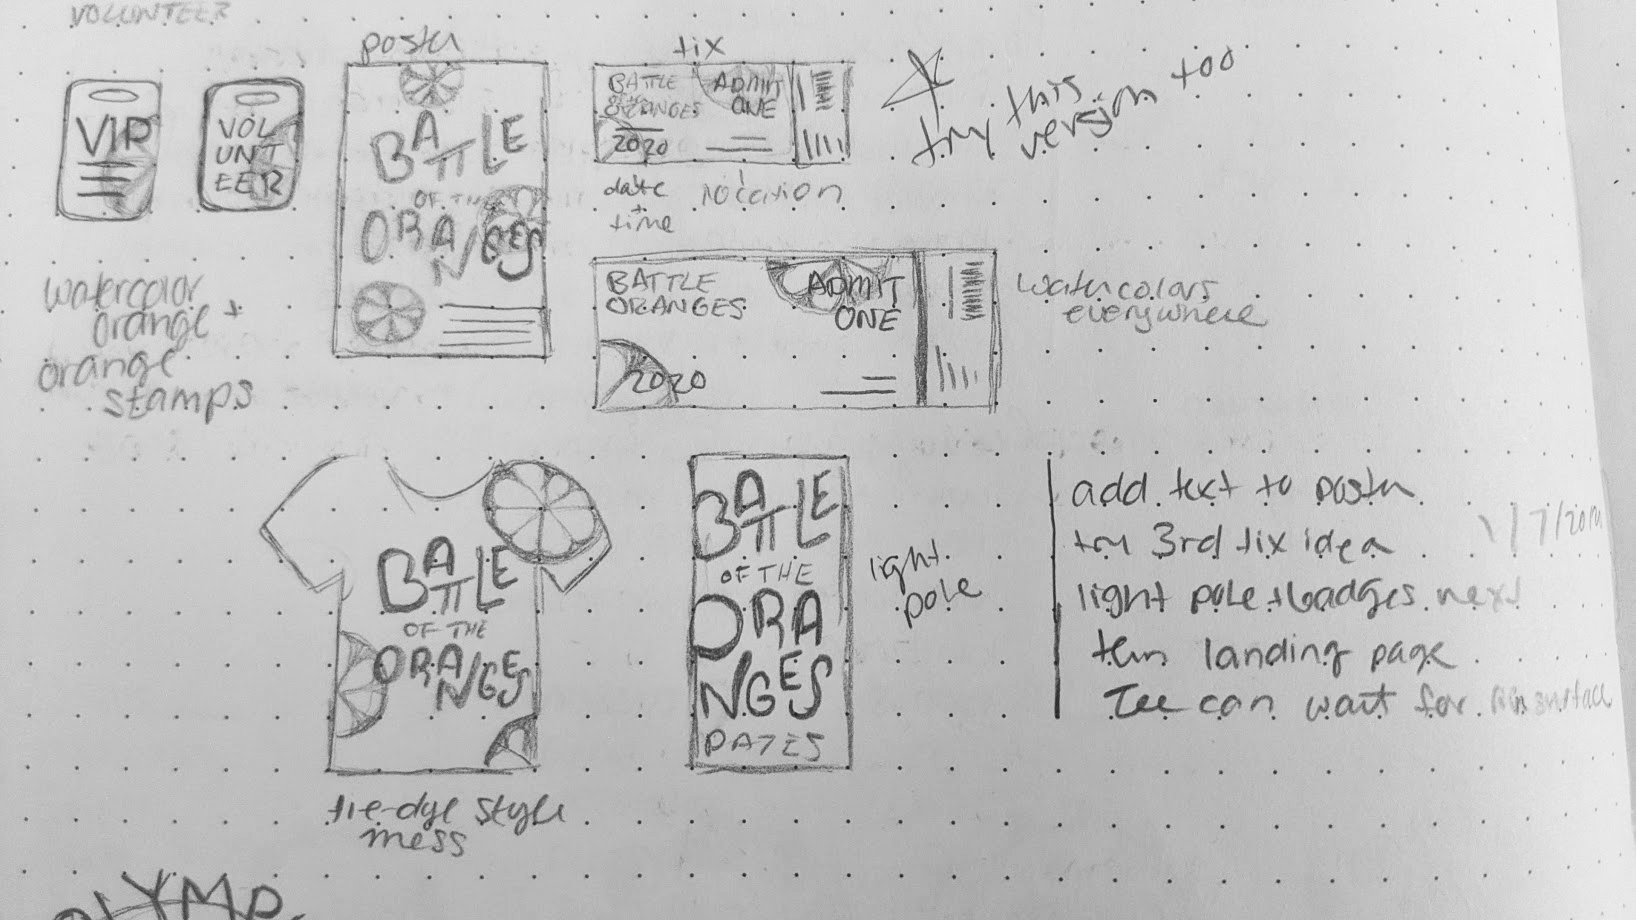 VOLUNTEER
poster
tix
VIP
VOL
UNT
EER
BATTLE
OF THE
ORANGES
BATTLE
ORANGES
2020
ADMIT
ONE
date
+
time
location
try this
version too
watercolor
orange +
orange
stamps
BATTLE
ORANGES
2020
ADMIT
ONE
watercolors
everywhere
BATTLE
OF THE
ORANGES
tie-dye style
mess
BATTLE
OF THE
ORA
NGES
DATES
light
pole
add text to poster
try 3rd tix idea
light pole + badges next
then landing page
Tee can wait for
OLYMP